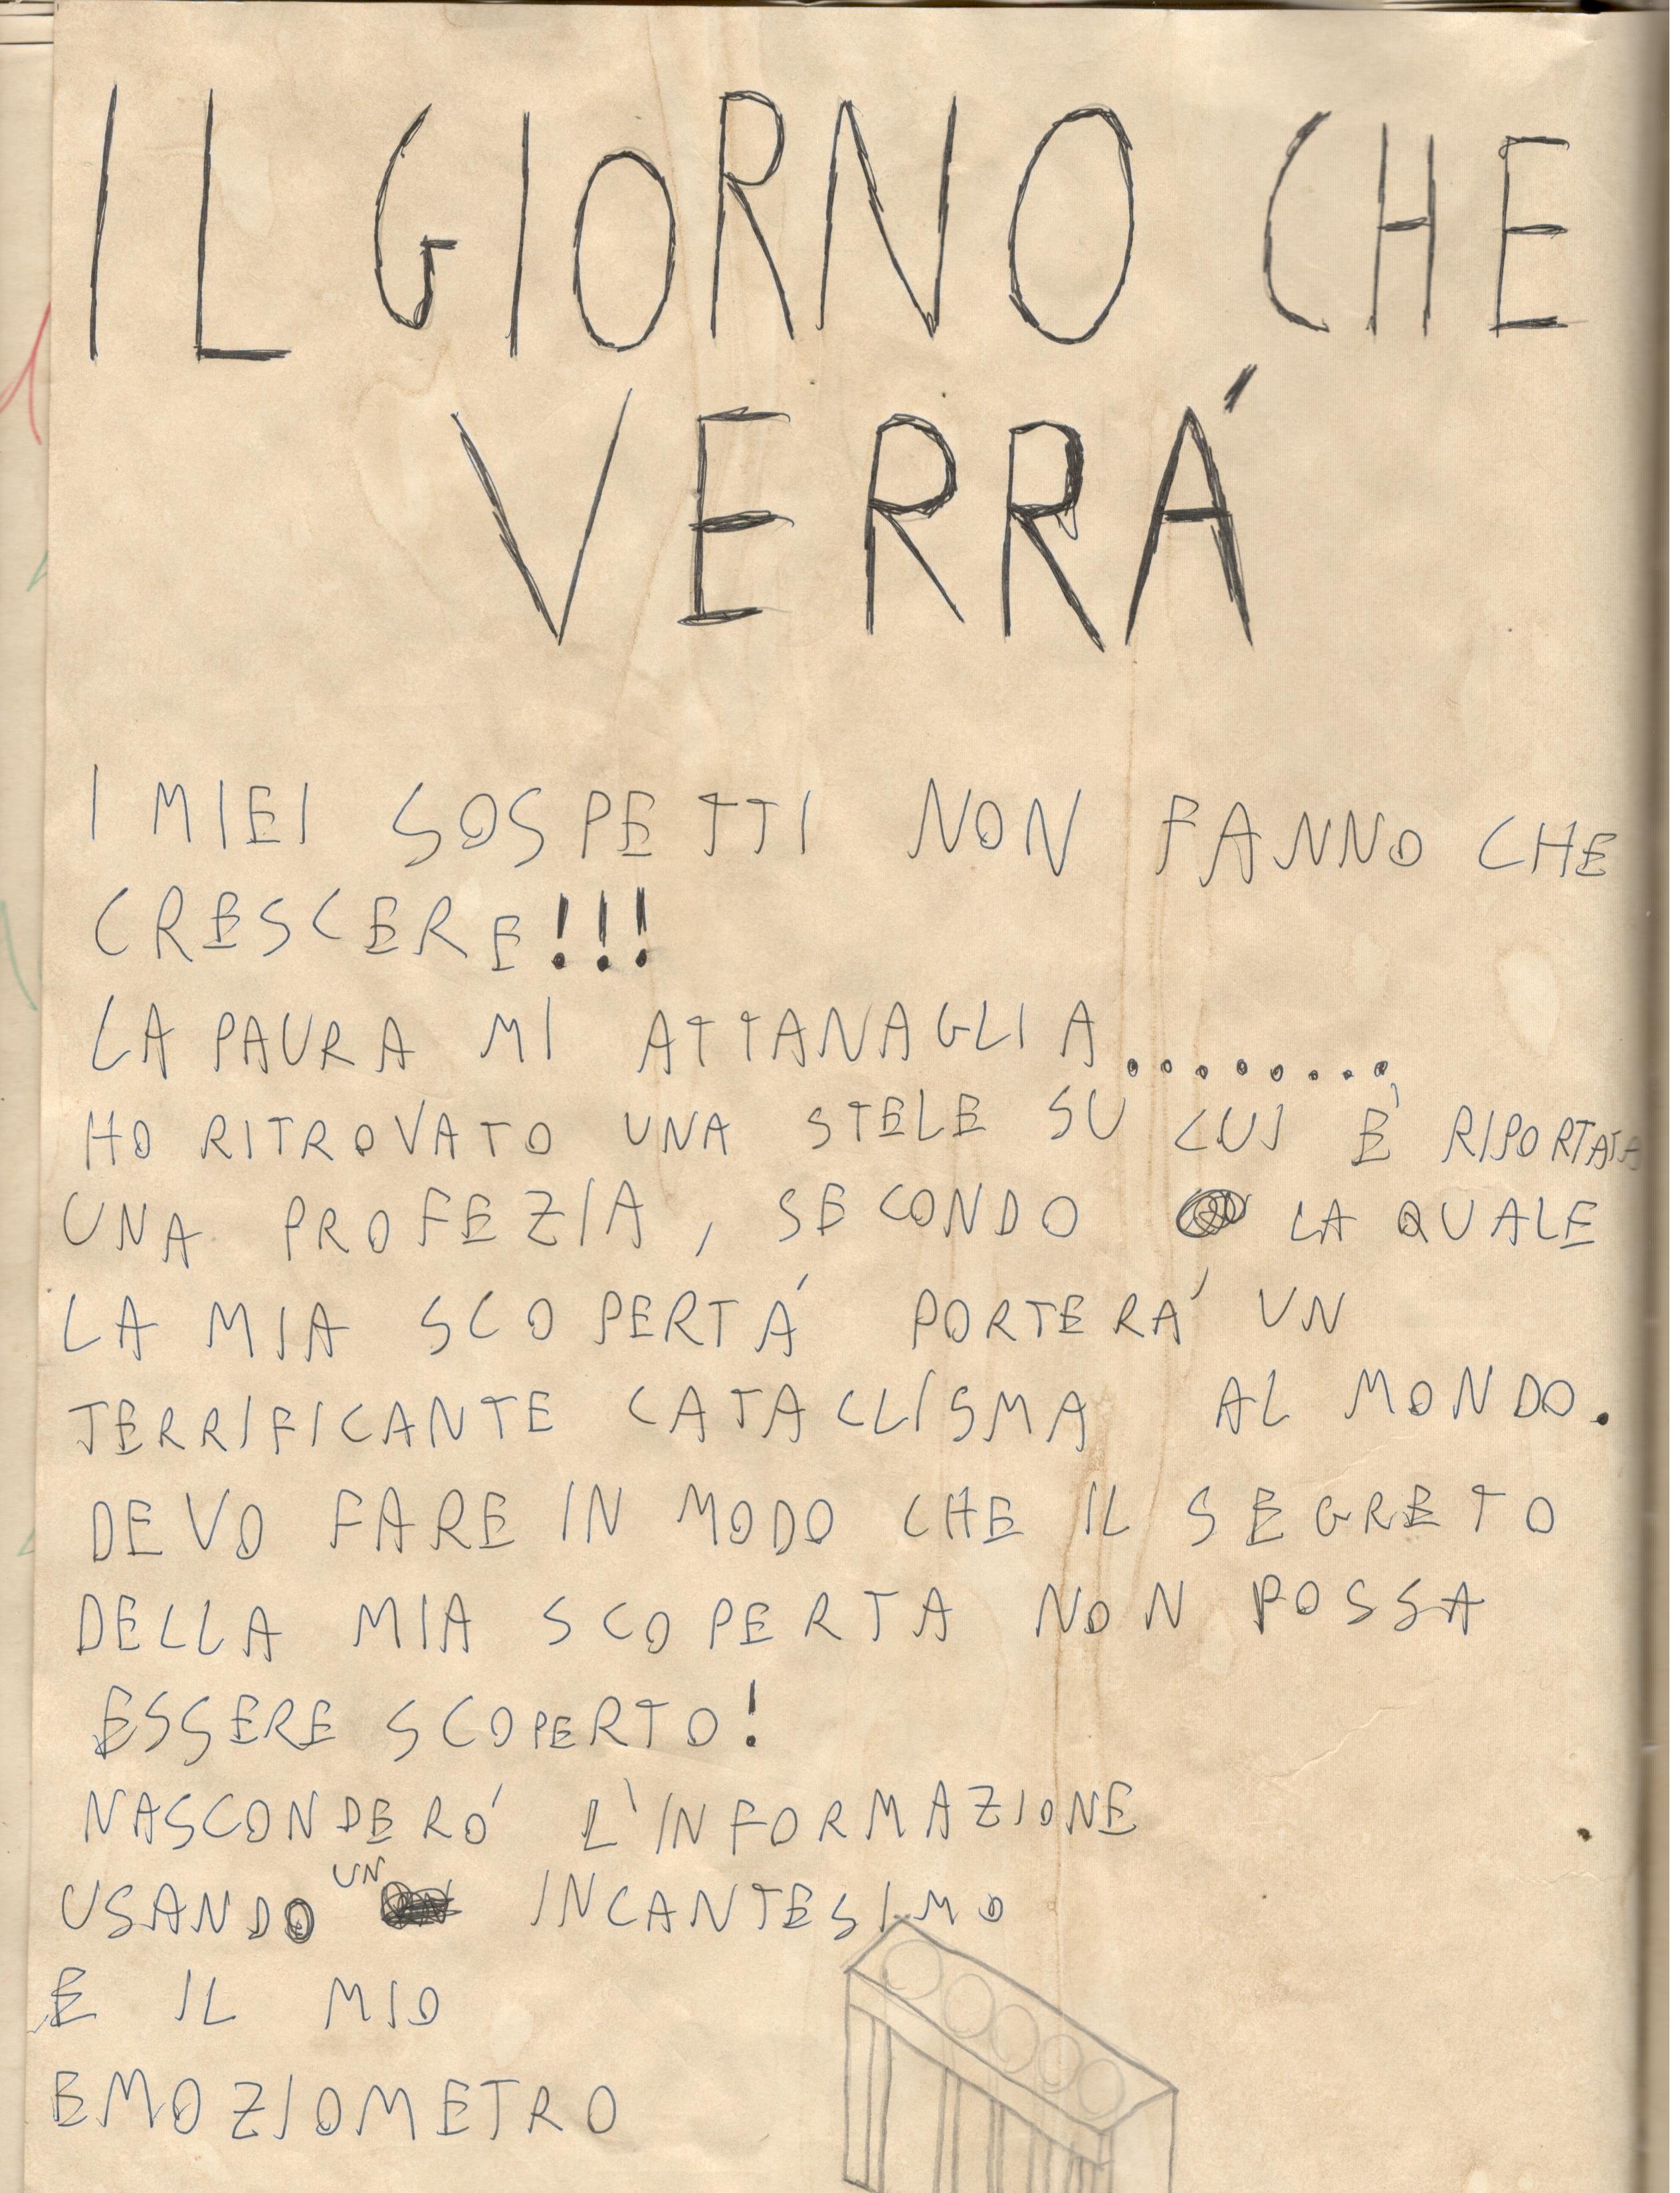 IL GIORNO CHE
VERRÁ
I MIEI SOSPETTI NON FANNO CHE
CRESCERE!!!
LA PAURA MI ATTANAGLIA........
HO RITROVATO UNA STELE SU CUI È RIPORTATA
UNA PROFEZIA, SECONDO LA QUALE
LA MIA SCOPERTÁ PORTERÁ UN
TERRIFICANTE CATACLISMA AL MONDO.
DEVO FARE IN MODO CHE IL SEGRETO
DELLA MIA SCOPERTA NON POSSA
ESSERE SCOPERTO!
NASCONDERÓ L'INFORMAZIONE
USANDO UN INCANTESIMO
E IL MIO
EMOZIOMETRO